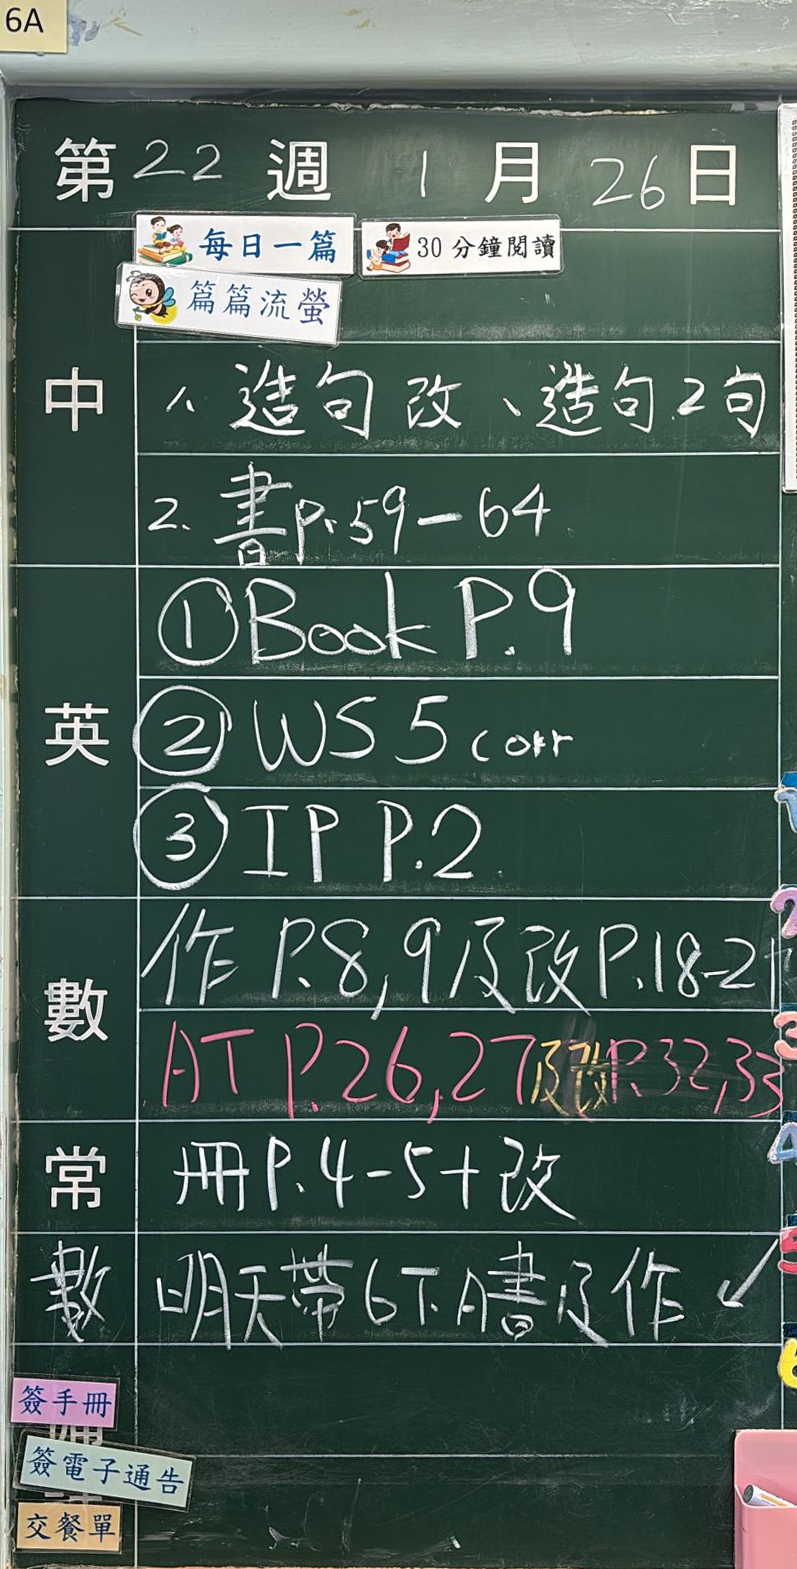 6A
第22週 1月26日
每日一篇 30分鐘閱讀
篇篇流螢
中
1. 造句改、造句2句
2. 書P.59-64
英
① Book P.9
② WS 5 corr
③ IP P.2
數
作 P.8,9及改P.18-21
AT P.26,27及改P.32,33
常
冊P.4-5+改
數 明天帶6下A書及作 ✓
簽手冊
簽電子通告
交餐單